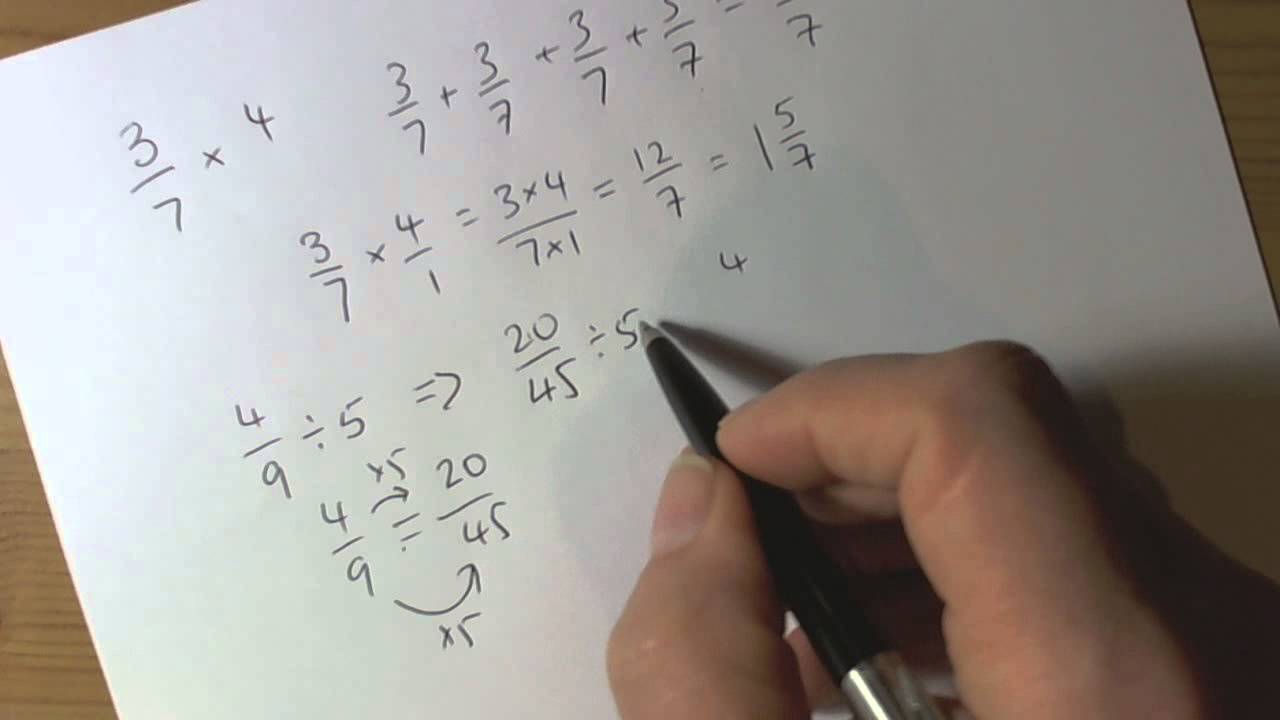 3/7 × 4
3/7 + 3/7 + 3/7 + 3/7 = /7
3/7 × 4/1 = 3×4/7×1 = 12/7 = 1 5/7
4
4/9 ÷ 5 => 20/45 ÷ 5
×5
4/9 = 20/45
×5